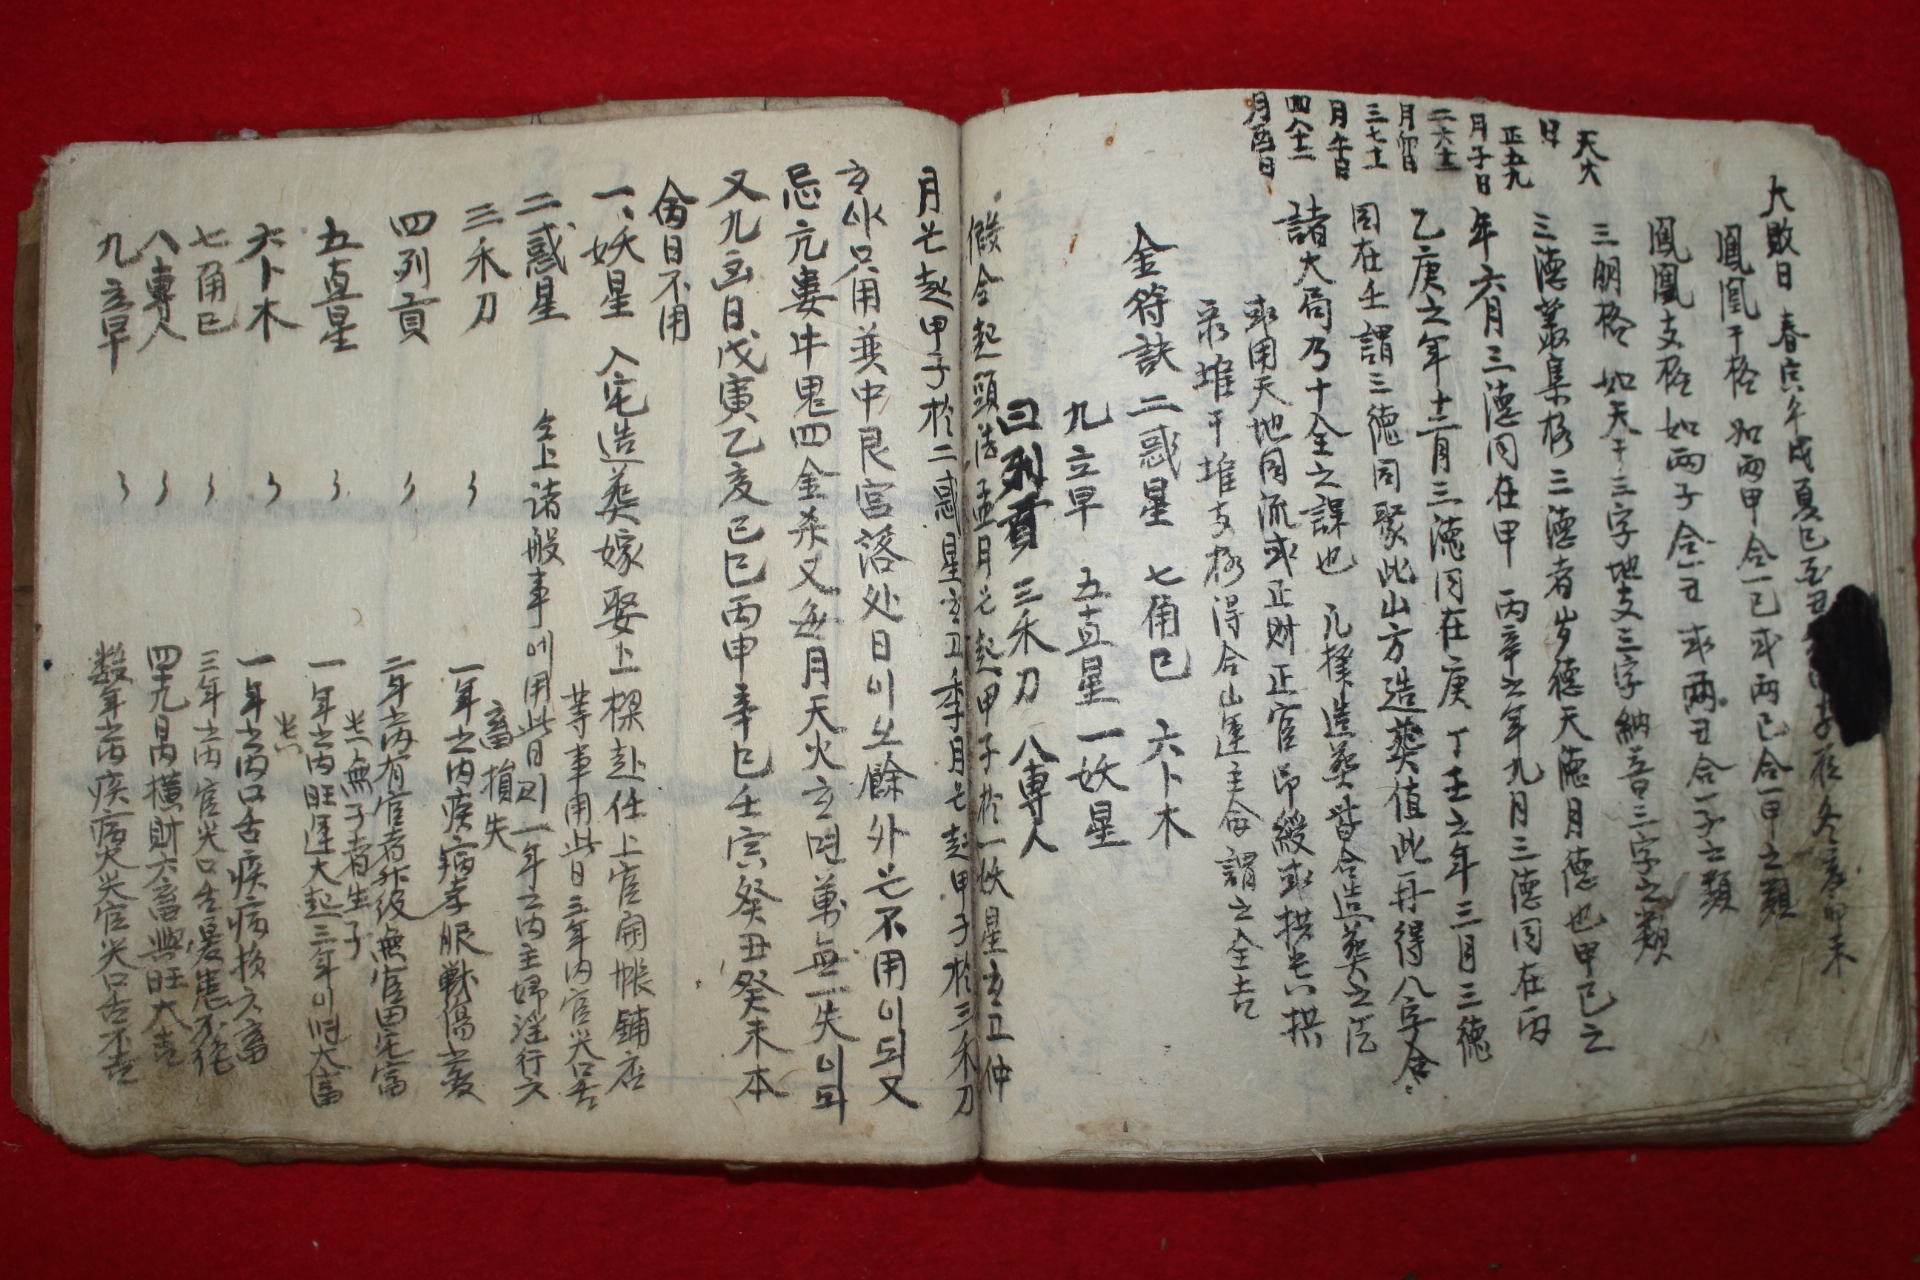 天火
日
正五九
月子日
二六十
月卯日
三七十一
月午日
四八十二
月酉日
大敗日 春寅午戌夏巳酉丑 冬亥卯未
鳳凰干格 如兩甲合一己或兩己合一甲之類
鳳凰支格 如兩子合一丑或兩丑合一子之類
三朋格 如天干三字地支三字納音三字之類
三德叢集格 三德者岁德天德月德也甲己之
年六月三德同在甲 丙辛之年九月三德同在丙
乙庚之年十二月三德同在庚 丁壬之年三月三德
同在壬謂三德同聚此山方造葬值此再得八字合
諸大局乃十全之課也 凡擇造葬皆合造葬之法
或用天地同流或正財正官印綬或拱 拱
堆干堆支格得合山運主命謂之全吉
金符訣 二惑星 七角巳 六卜木
九立早 五直星 一妖星
四列貢 三禾刀 八專人
假令起頭法孟月 起甲子於一妖星 仲
月 起甲子於二惑星 季月 起甲子於三禾刀
只用 中艮宮落处日이요餘外 不用이되又
忌亢婁牛鬼四金杀又每月天火 萬無一失이되
又九 日戊寅乙亥己巳丙申辛巳壬寅癸丑癸未本
命日不用
一、妖星 入宅造葬嫁娶上樑赴任上官開帳鋪店
等事用此日三年內官 口舌
二惑星 仝上諸般事에用此日則一年之內主婦淫行六
畜損失
三禾刀 〻 一年之內疾病孝服
四列貢 〻 二年之內有官者升級無官田宅富
無子者生子
五直星 〻 一年之內旺運大起三年 大富
六卜木 〻 一年之內口舌疾病損六畜
七角巳 〻 三年之內官 口舌
八專人 〻 四十九日內橫財六畜興旺大吉
九立早 〻 数年之內疾病 官 口舌不吉